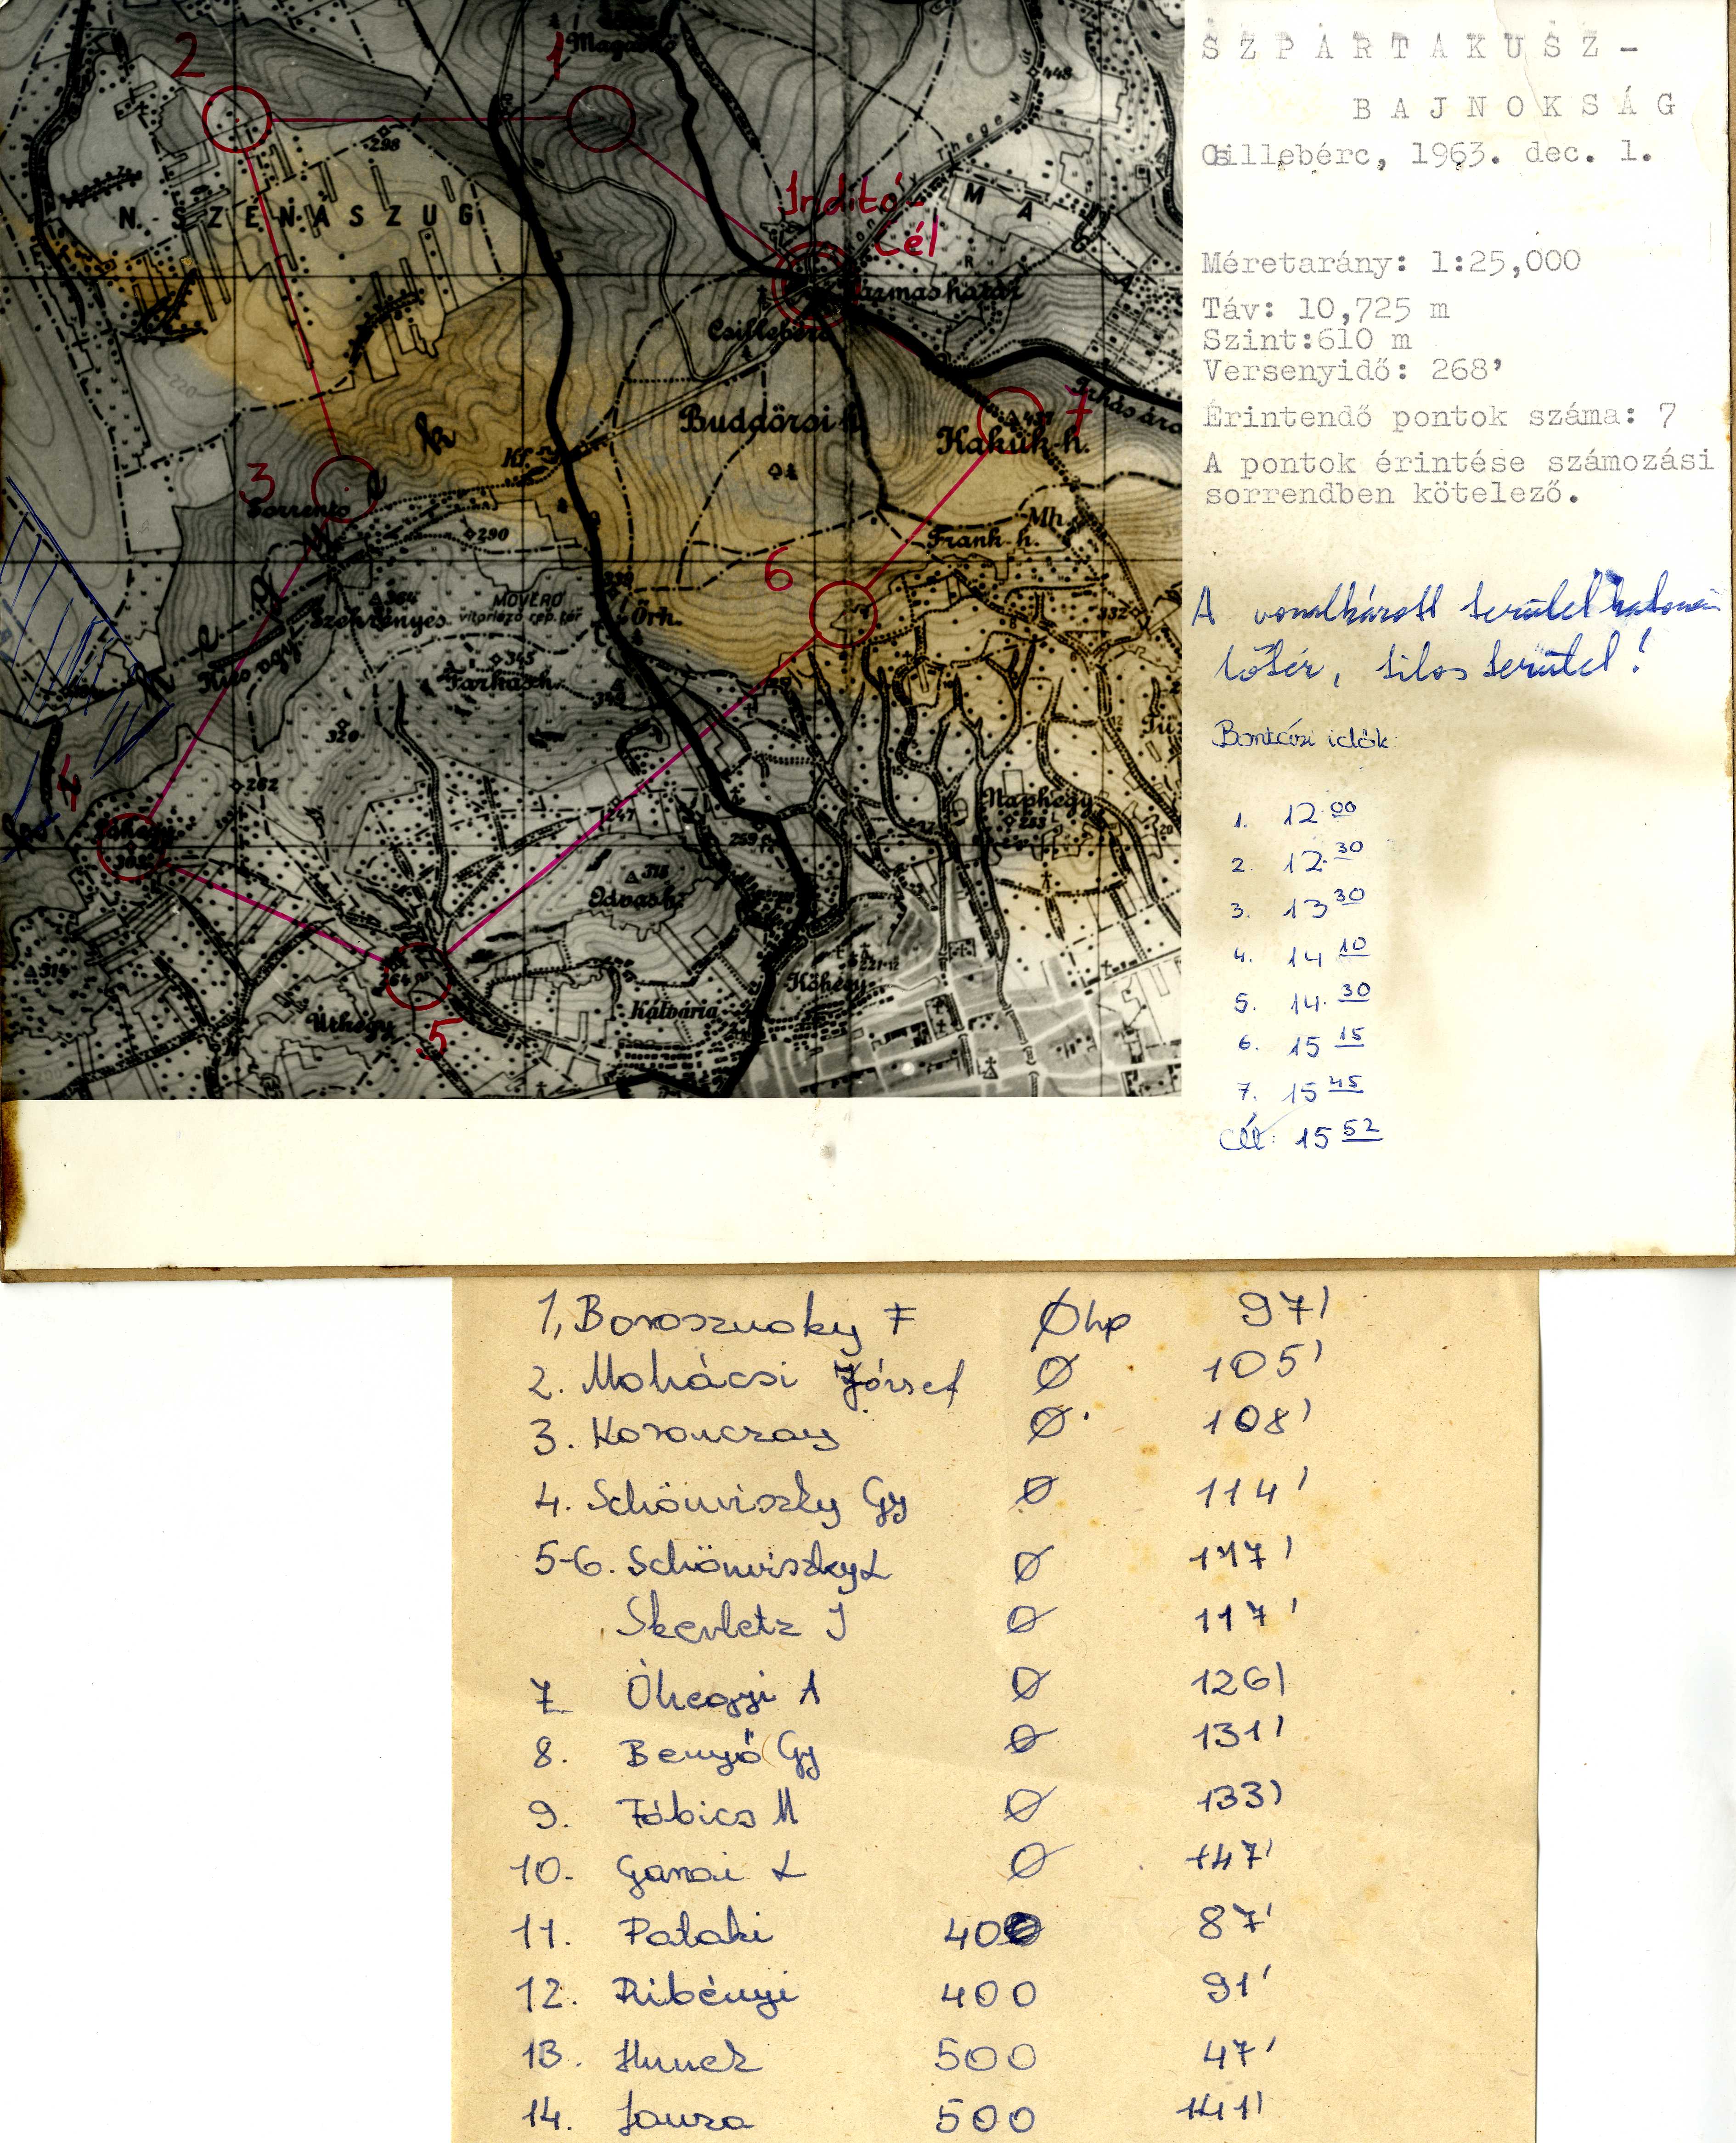 2
1
298
449
N. SZÉNÁSZUG
Inditó-
Cél
M A G
Csillebérc
Budaörsi h.
437
7
Kakuk-h.
Irhás árok
3
Kf.
Sorrento
290
Mh.
Frank-h.
6
364
Szekrényes
MOVERO
vitorlázó rep. tér
Örh.
332
345
Farkash.
320
4
262
Naphegy
253
247
259
Odvash.
315
314
264
Kőhegy
Kálvária
Úthegy
5
SZPARTAKUSZ-
BAJNOKSÁG
Csillebérc, 1963. dec. 1.
Méretarány: 1:25,000
Táv: 10,725 m
Szint:610 m
Versenyidő: 268'
Érintendő pontok száma: 7
A pontok érintése számozási
sorrendben kötelező.
A vonalkázott terület katonai
lőtér, tilos terület!
Bontási idők:
1. 12.00
2. 12.30
3. 13 30
4. 14 10
5. 14.30
6. 15 15
7. 15 45
Cél: 15 52
1, Borosznoky F Øhp 97'
2. Mohácsi József Ø 105'
3. Koronczay Ø 108'
4. Schönviszky Gy Ø 114'
5-6. Schönviszky L Ø 117'
Skerletz I Ø 117'
7 Óhegyi A Ø 126'
8. Benyó Gy Ø 131'
9. Fábics M Ø 133'
10. Garai L Ø 147'
11. Pataki 400 87'
12. Ribényi 400 91'
13. 500 47'
14. Jausa 500 141'